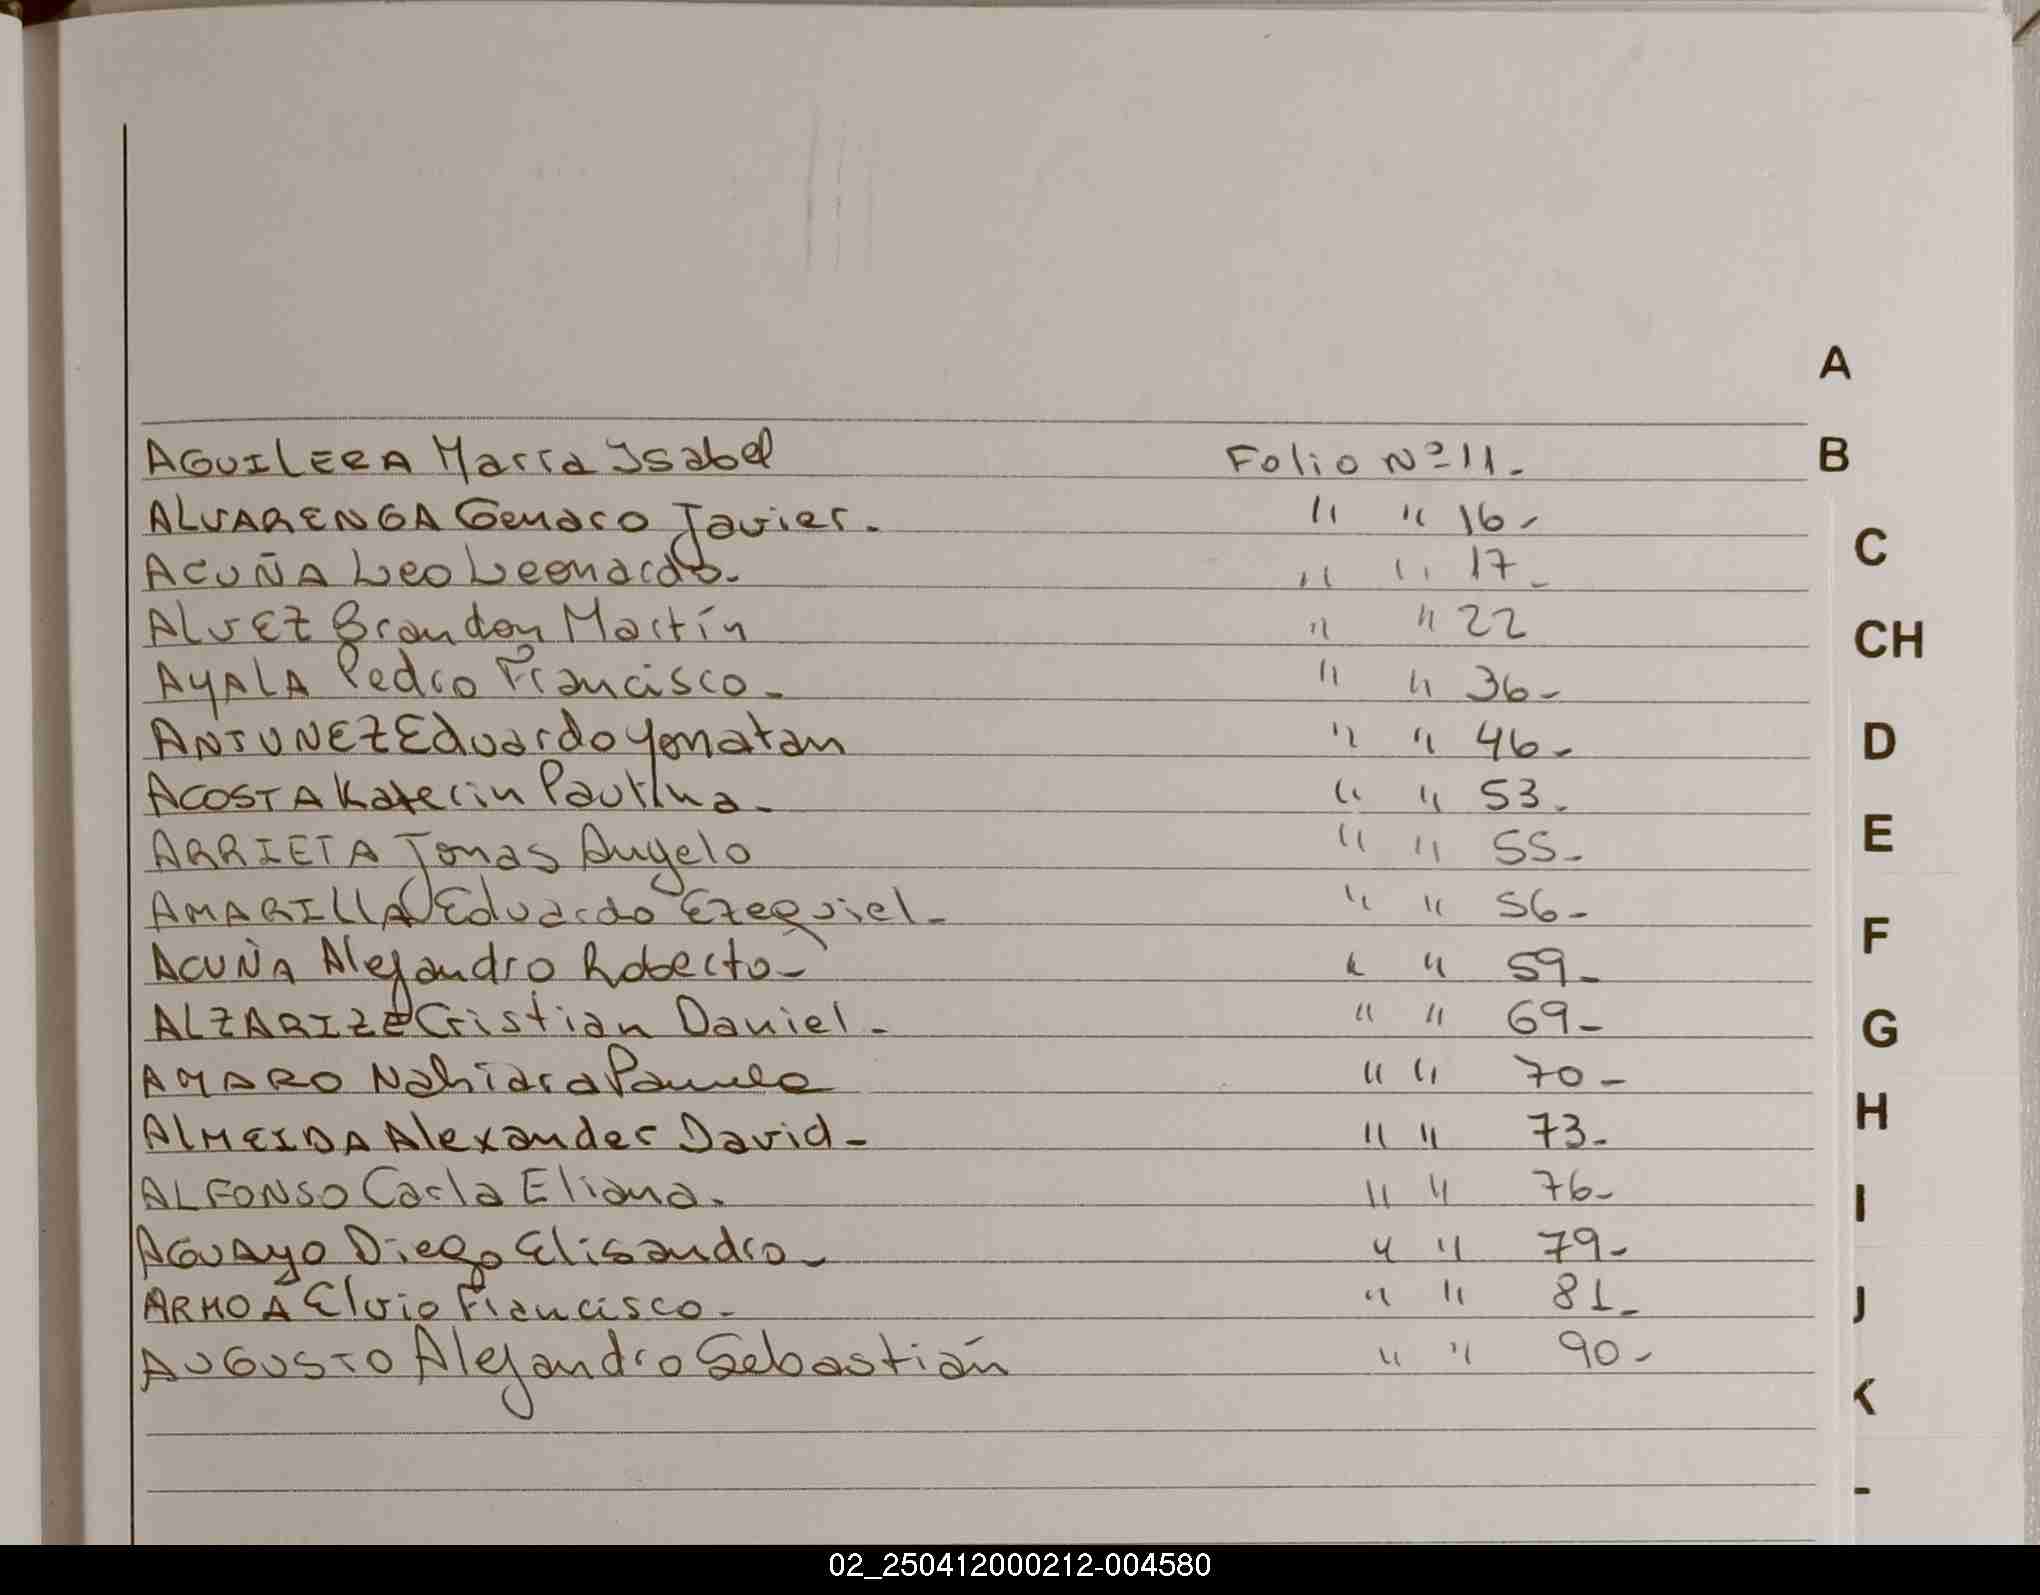 AGUILERA María Isabel Folio Nº 11.
ALVARENGA Genaro Javier. " " 16-
ACUÑA Leo Leonardo. " " 17-
ALVEZ Brandon Martín " " 22
AYALA Pedro Francisco- " " 36-
ANTUNEZ Eduardo Yonatan " " 46-
ACOSTA Katerin Paulina- " " 53.
ARRIETA Jonas Angelo " " 55-
AMARILLA Eduardo Ezequiel- " " 56-
ACUÑA Alejandro Roberto- " " 59-
ALZARIZE Cristian Daniel- " " 69-
AMARO Nahiara Pamela " " 70-
ALMEIDA Alexander David- " " 73-
ALFONSO Carla Eliana. " " 76-
AGUAYO Diego Elisandro- " " 79-
ARMOA Elvio Francisco- " " 81-
AUGUSTO Alejandro Sebastián " " 90-
A
B
C
CH
D
E
F
G
H
I
J
K
02_250412000212-004580